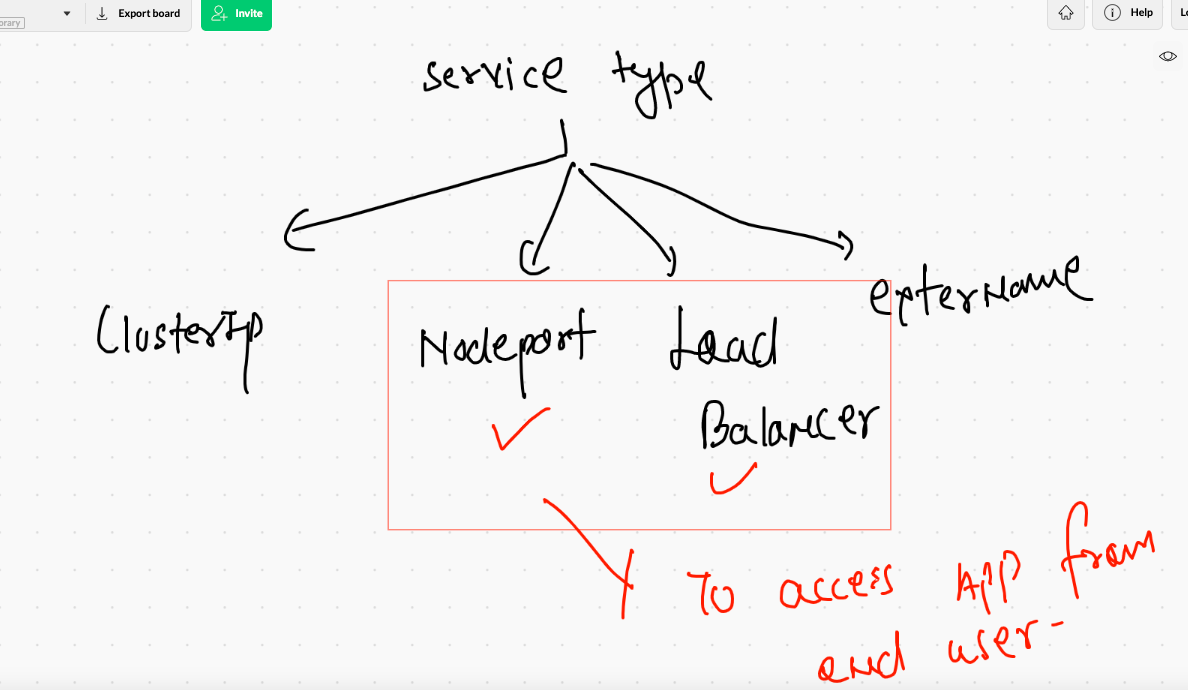 Export board
Invite
Help
service type
ClusterIp
Nodeport
Load
Balancer
exterName
To access App from
end user-